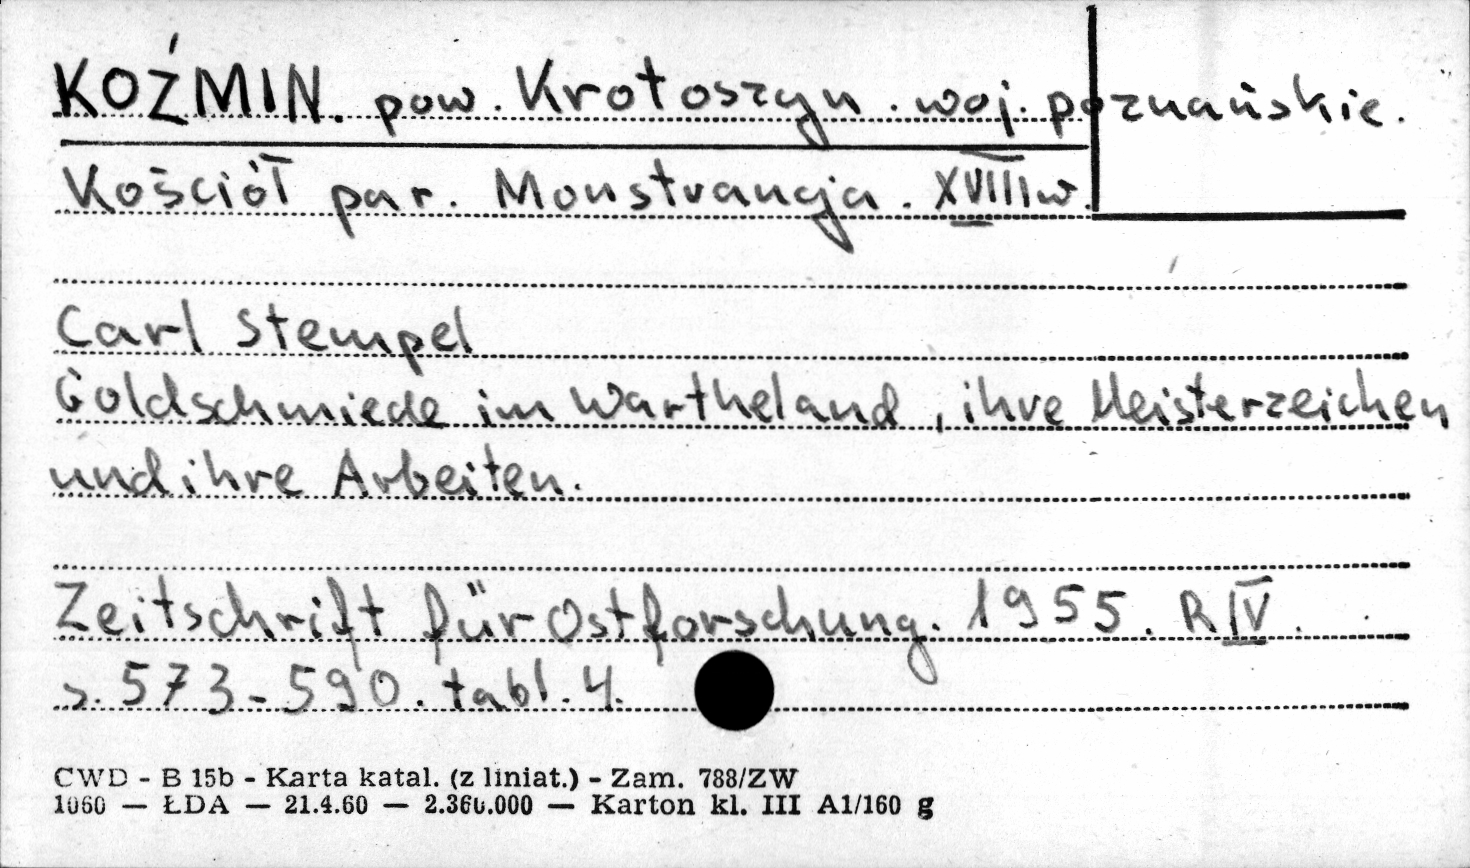 KOŹMIN. pow. Krotoszyn. woj. poznańskie.
Kościół par. Monstrancja. XVIII w.
Carl Stempel
Goldschmiede im Wartheland, ihre Meisterzeichen
und ihre Arbeiten.
Zeitschrift für Ostforschung. 1955. R IV.
s. 573-590. tabl. 4.
CWD - B 15b - Karta katal. (z liniat.) - Zam. 788/ZW
1060 — ŁDA — 21.4.60 — 2.360.000 — Karton kl. III A1/160 g